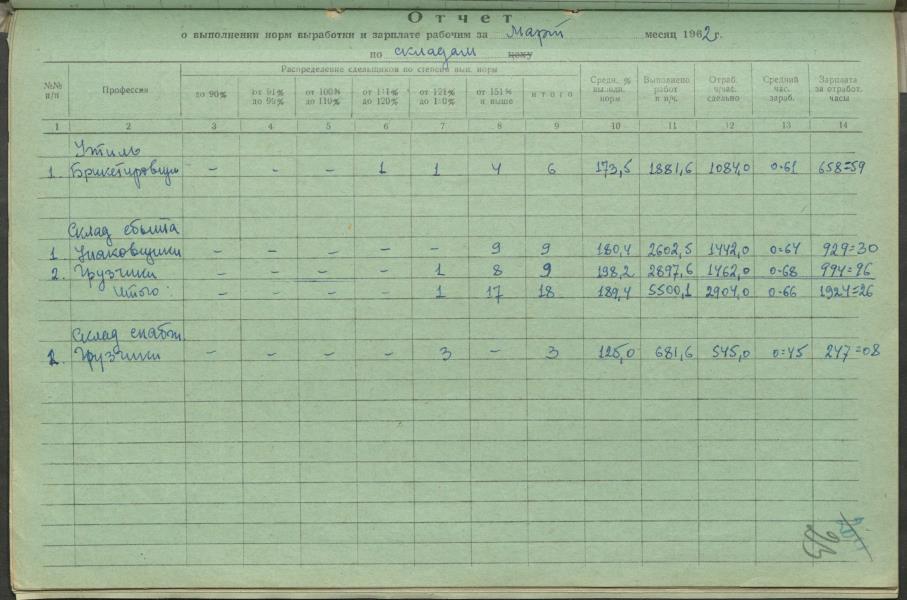 Отчет
о выполнении норм выработки и зарплате рабочим за Март месяц 1962г.
по складам цеху
№№ п/п Профессия Распределение сдельщиков по степени вып. нормы Средн. % выполн. норм Выполнено работ в н/ч. Отраб. ч/час. сдельно Средний час. зараб. Зарплата за отработ. часы
до 90% от 91% до 99% от 100% до 110% от 111% до 120% от 121% до 150% от 151% и выше итого
1 2 3 4 5 6 7 8 9 10 11 12 13 14
Утиль
1. Брикетировщик – – – 1 1 4 6 173,5 1881,6 1084,0 0-61 658=59
Склад сбыта
1 Упаковщики – – – – – 9 9 180,4 2602,5 1442,0 0=64 929=30
2. Грузчики – – – – 1 8 9 198,2 2897,6 1462,0 0-68 994=96
Итого: – – – – 1 17 18 189,4 5500,1 2904,0 0-66 1924=26
Склад снабж.
1. Грузчики – – – – 3 – 3 125,0 681,6 545,0 0=45 247=08